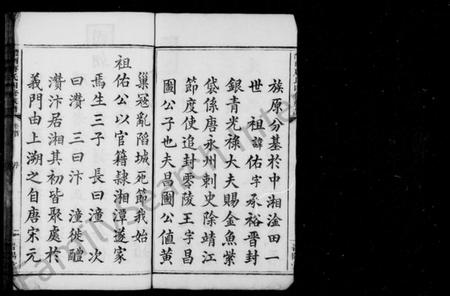 族原分基於中湘淦田一
世祖諱佑字承裕晋封
銀青光祿大夫賜金魚紫
袋係唐永州刺史除靖江
節度使追封零陵王字昌
國公子也夫昌國公値黄
巢冦亂陷城死節我始
祖佑公以官籍隷湘潭遂家
焉生三子長曰潼次
曰濽三曰汴潼徙醴
濽汴居湘其初皆聚處於
義門由上溯之自唐宋元